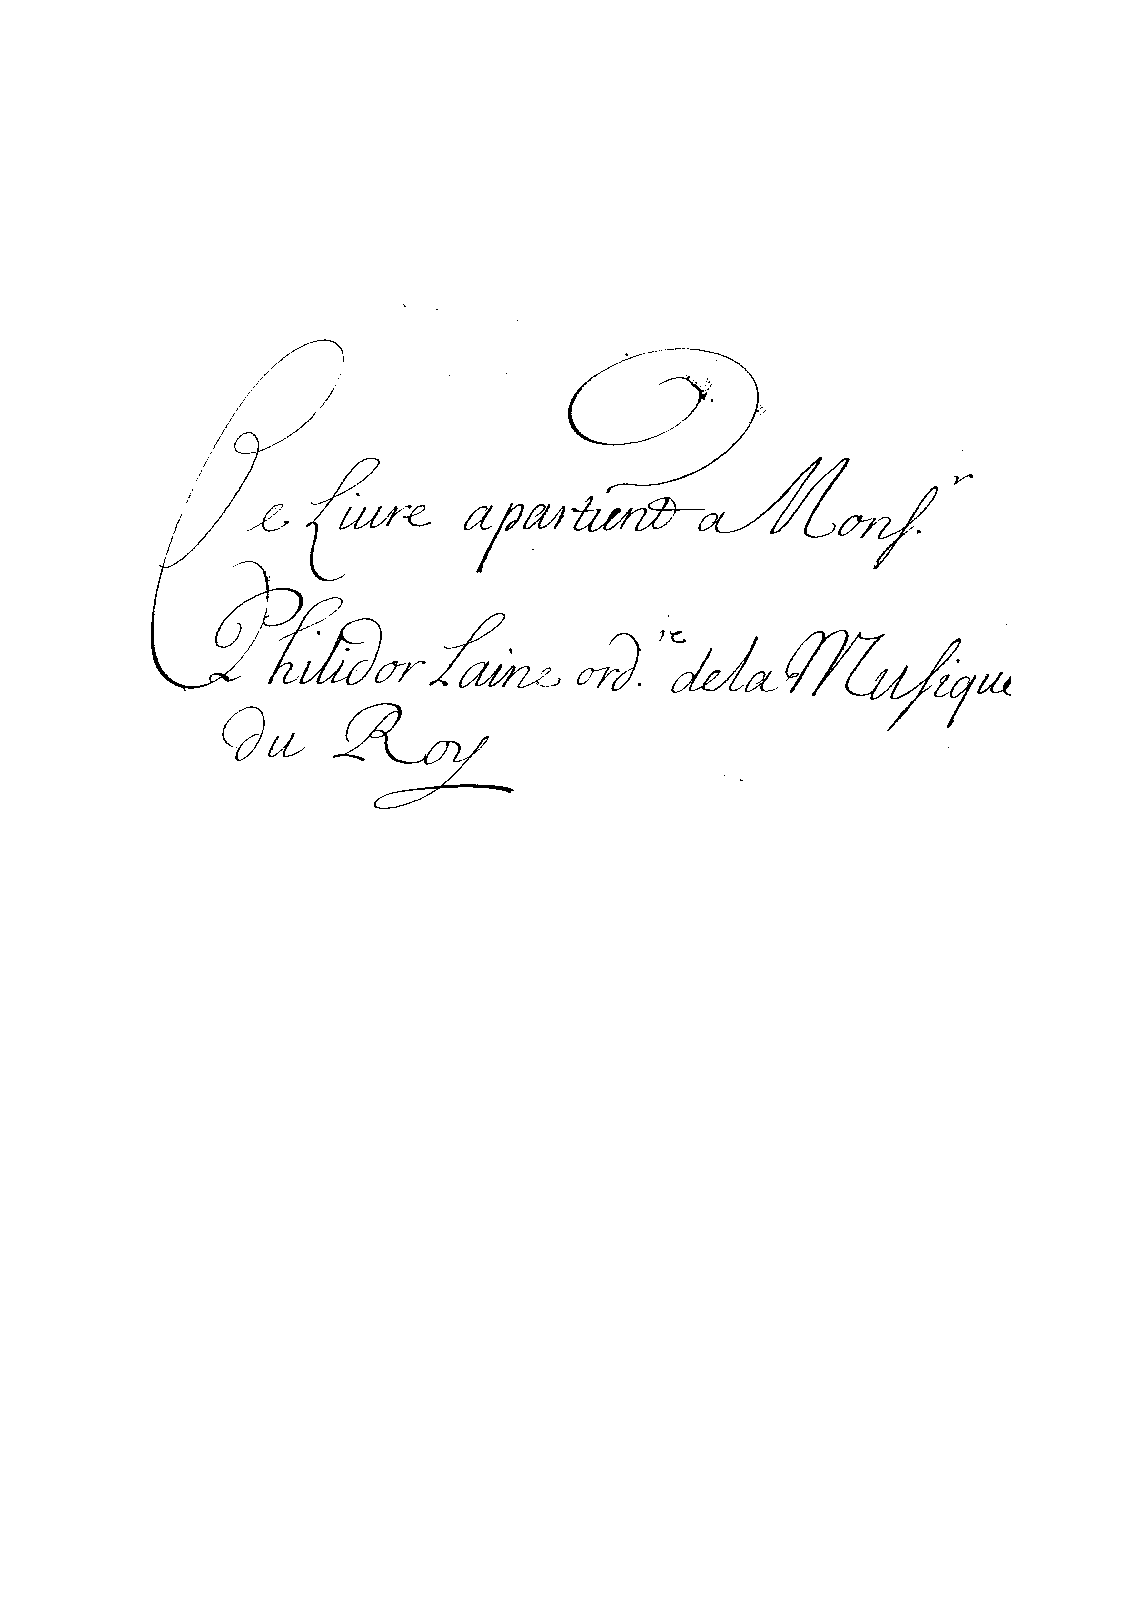 Ce Liure apartient a Monsʳ.
Philidor Laine ord.ʳᵉ dela Musique
du Roy